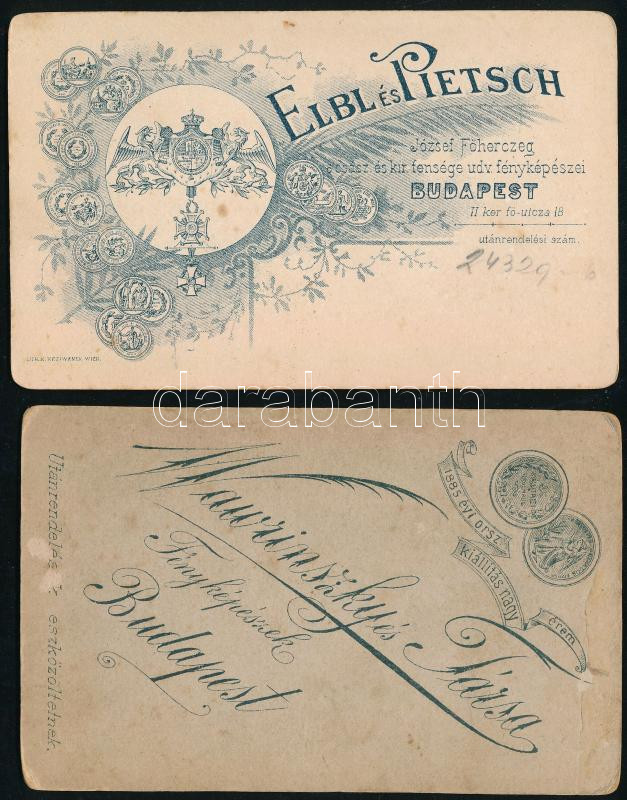 ELBL ÉS PIETSCH
József Főherczeg
császár és kir. fensége udv. fényképészei
BUDAPEST
II ker fő-utcza 18
utánrendelési szám.
24329
darabanth
1885 évi orsz.
kiállítás nagy
érem
Mawrinszky és Társa
Fényképészek
Budapest
Utánrendelés
eszközöltetnek.